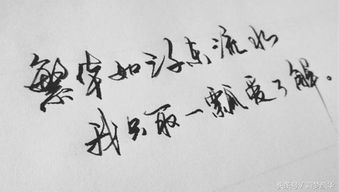 繁华如三千东流水
我只取一瓢爱了解。
头条号 /